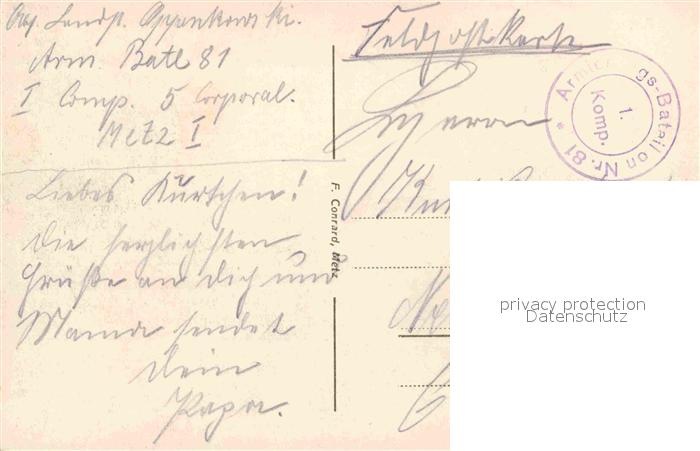 Abs. Landst. Oppenkowski.
Arm. Batl 81
I Comp. 5 Corporal.
Metz I
Liebes Kurtchen!
Die herzlichsten
Grüße an dich und
Mama sendet
dein
Papa.
F. Conrard, Metz
Feldpostkarte
Herrn
Armierungs-Bataillon Nr. 81 *
1.
Komp.
privacy protection
Datenschutz